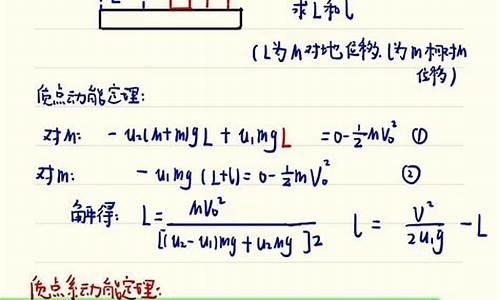 求L和l
(L为M对地位移.l为m相对M
位移)
质点动能定理:
对M: -u₂(M+m)gL + u₁mgL = 0-½MV₀² ①
对m: -u₁mg(L+l) = 0-½mV₀² ②
解得: L = MV₀² / [(u₂-u₁)mg+u₂Mg]2 l = V²/2u₁g - L
质点系动能定理: